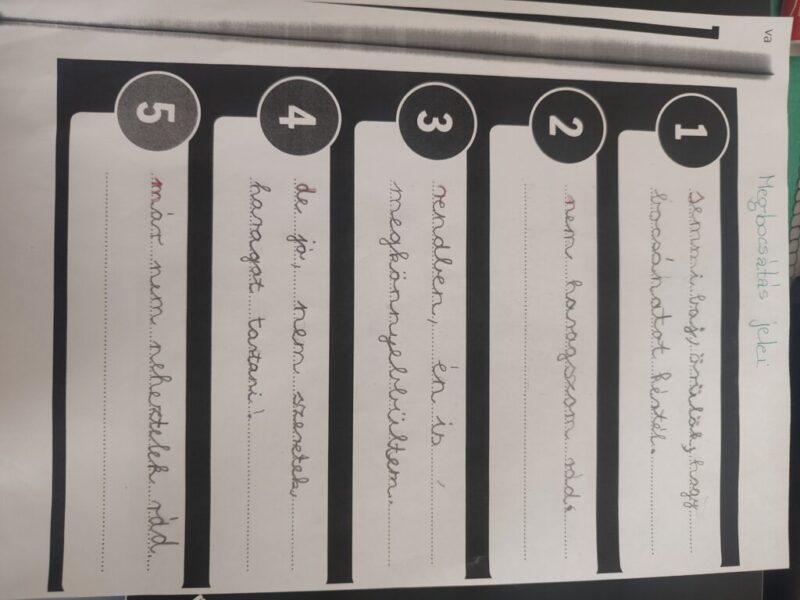 va
Megbocsátás jelei
1
semmi baj, örülök, hogy
bocsánatot kértél.
2
nem haragszom rád.
3
rendben, én is
megkönnyebbültem.
4
de jó, nem szeretek
haragot tartani!
5
már nem neheztelek rád